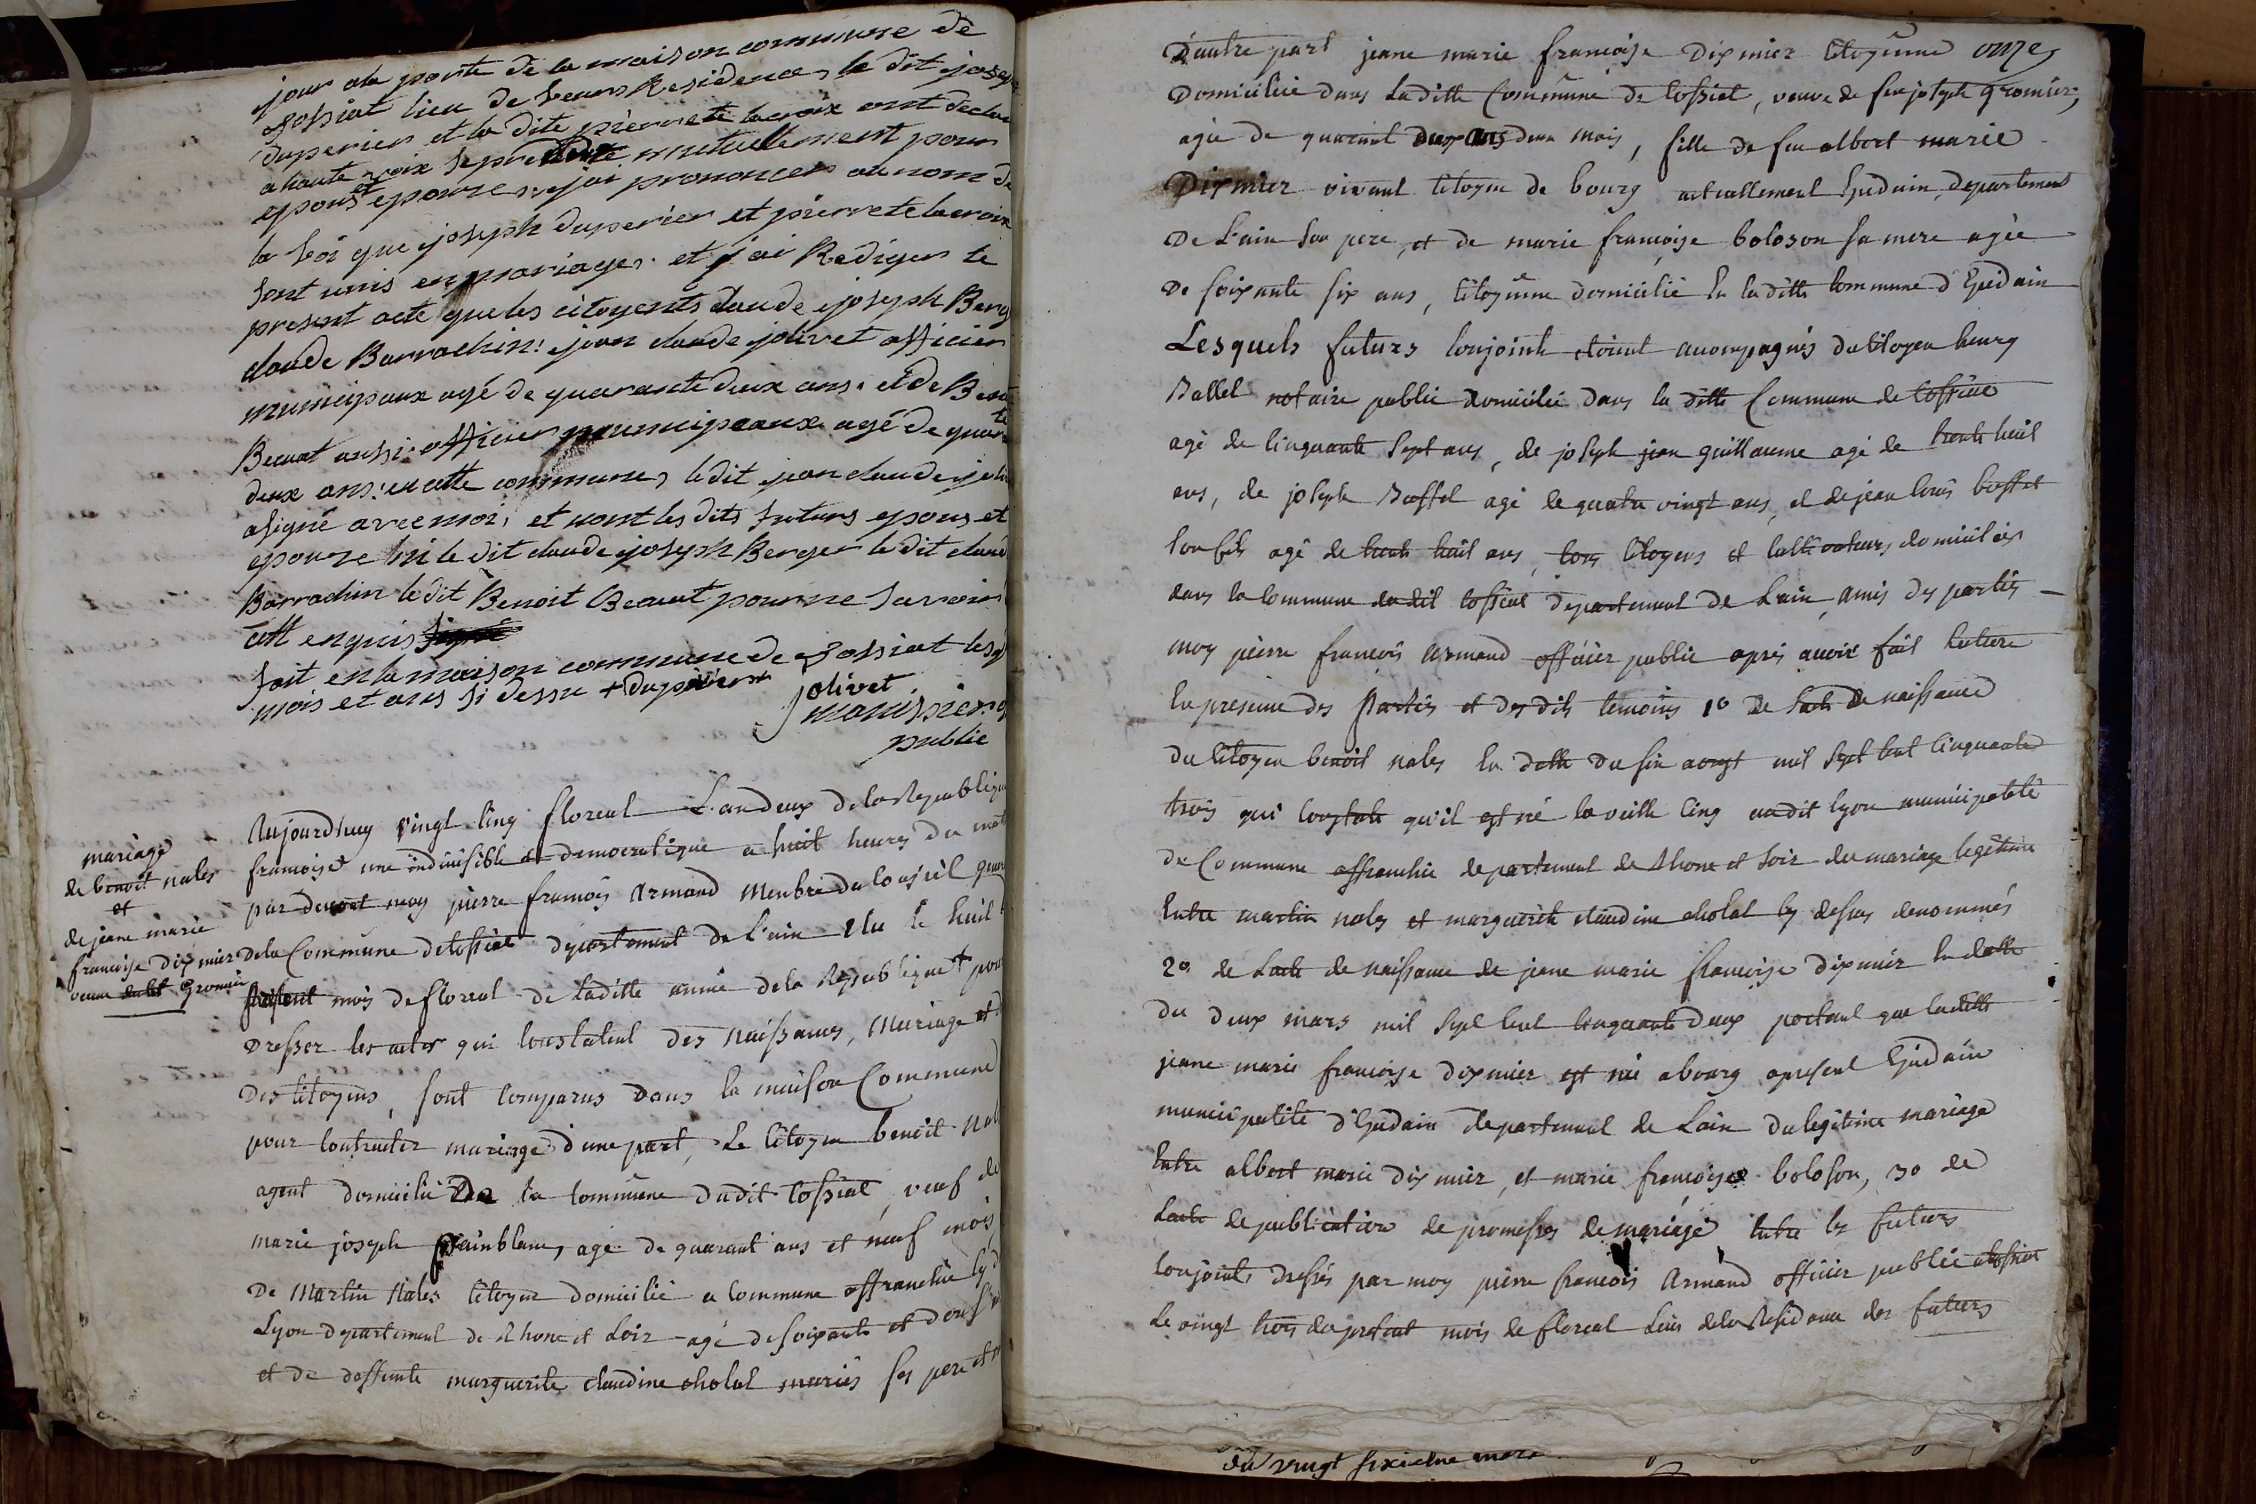 jour a la porte de la maison commune de
ajossiat lieu de leurs Residences le dit joseph
duperier et la dite pierrete lacroix ont declare
a haute voix se prendre mutuellement pour
epous et epouze, j'ai prononcer au nom de
la loi que joseph duperier et pierrete lacroix
sont unis en mariage. et j'ai Rediger le
present acte que les citoyents claude joseph Berg
claude Barrachin: jean claude jolivet officier
municipaux agé de quarante deux ans. et de Benoit
Becuat aussi officier municipeaux agé de quarante
deux ans: en cette commune, le dit jean claude jolivet
a signé avec moi, et nont les dits futurs epous et
epouze ni le dit claude joseph Berger le dit claude
Barrachin le dit Benoit Becuat pour ne savoir
cett enquis signé
fait en la maison commune de jossiat les jour
mois et ans si dessu + duperier
jolivet
public
mariage
de benoit nales
et
de jeane marie
francoise dixmier
veuve gromier
Aujourdhuy vingt cinq floreal L'an deux de la Republique
francoise une indivisible et democratique a huit heures du matin
par devant moy pierre francois Armand Membre du Conseil general
de la Commune de tossiat departement de L'ain elu le huit
present mois de floreal de laditte année de la Republique + pour
Dresser les actes qui Constatent des Naissances, Mariage et
Des Citoyens, sont Comparus Dans la maison Commune
pour Contracter mariage d'une part, Le Citoyen benoit Nales
agent domicilié la Commune dudit tossiat, veuf de
marie joseph painblanc, agé de quarant ans et neuf mois,
De Martin Nales Citoyen domicilié a Commune affranchie
Lyon departement de Rhone et Loir agé de soixante et
et de deffunte marguerite claudine cholat mariés ses pere et mere
D'autre part jeane marie francoise Dixmier Citoyenne onze
Domiciliée dans Laditte Commune de tossiat, veuve de feu joseph gromier,
agée de quarent deux ans deux mois, fille de feu albert marie
Dixmier vivant Citoyen de bourg actuellement Epidain, departement
De L'ain son pere, et de marie françoise boloson sa mere agée
De soixante six ans, Citoyenne domicilié En laditte Commune d'Epidain
Lesquels futurs Conjoints etoient accompagnés du Citoyen henry
Ballet notaire public domicilié dans la ditte Commune de tossiat
agé de Cinquante sept ans, de joseph jean guillaume agé de trente huit
ans, de joseph Buffet agé de quatre vingt ans, et de jean louis buffet
son fils agé de trente huit ans, tous Citoyens et Cultivateurs domiciliés
dans la Commune dudit tossiat departement de L'ain, amis des parties
moy pierre francois Armand officier public apres avoir fait lecture
En presence des parties et des dits temoins 1º De Lacte de naissance
du Citoyen benoit nales En datte du six aoust mil sept Cent Cinquante
trois qui Constate qu'il est né la veille Cinq audit Lyon municipalité
de Commune affranchie departement de Rhone et Loir du mariage legitime
Entre martin nales et marguerite claudine cholat cy dessus denommés
2º de Lacte de naissance de jeane marie francoise dixmier En datte
du deux mars mil sept Cent Cinquante deux portant que laditte
jeane marie francoise dixmier est née a bourg apresent Epidain
municipalité d'Epidain departement de Lain du legitime mariage
Entre albert marie dixmier, et marie francoise boloson, 3º de
Lacte de publication de promesses de mariage Entre les futurs
Conjoints dressés par moy pierre francois Armand officier public atossiat
Le vingt trois du present mois de floreal Lieu de la Residence des futurs
du vingt sixieme mars